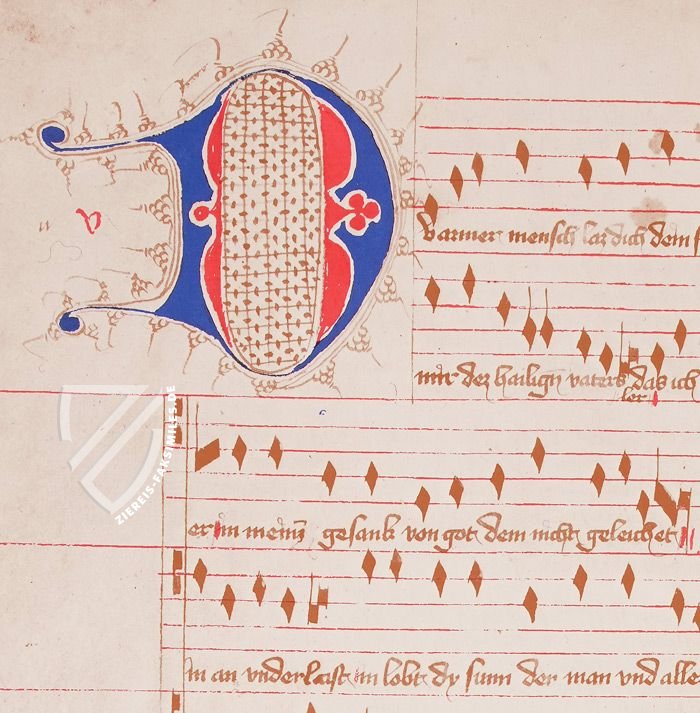 D varmer mensch las dich dem s
mir der hailign vaters das ich
ler
er im meinū gesank von got dem nicht geleichet
In an vnderlast in lobt dy sunn der man vnd alle
ZIEREIS-FAKSIMILES.DE